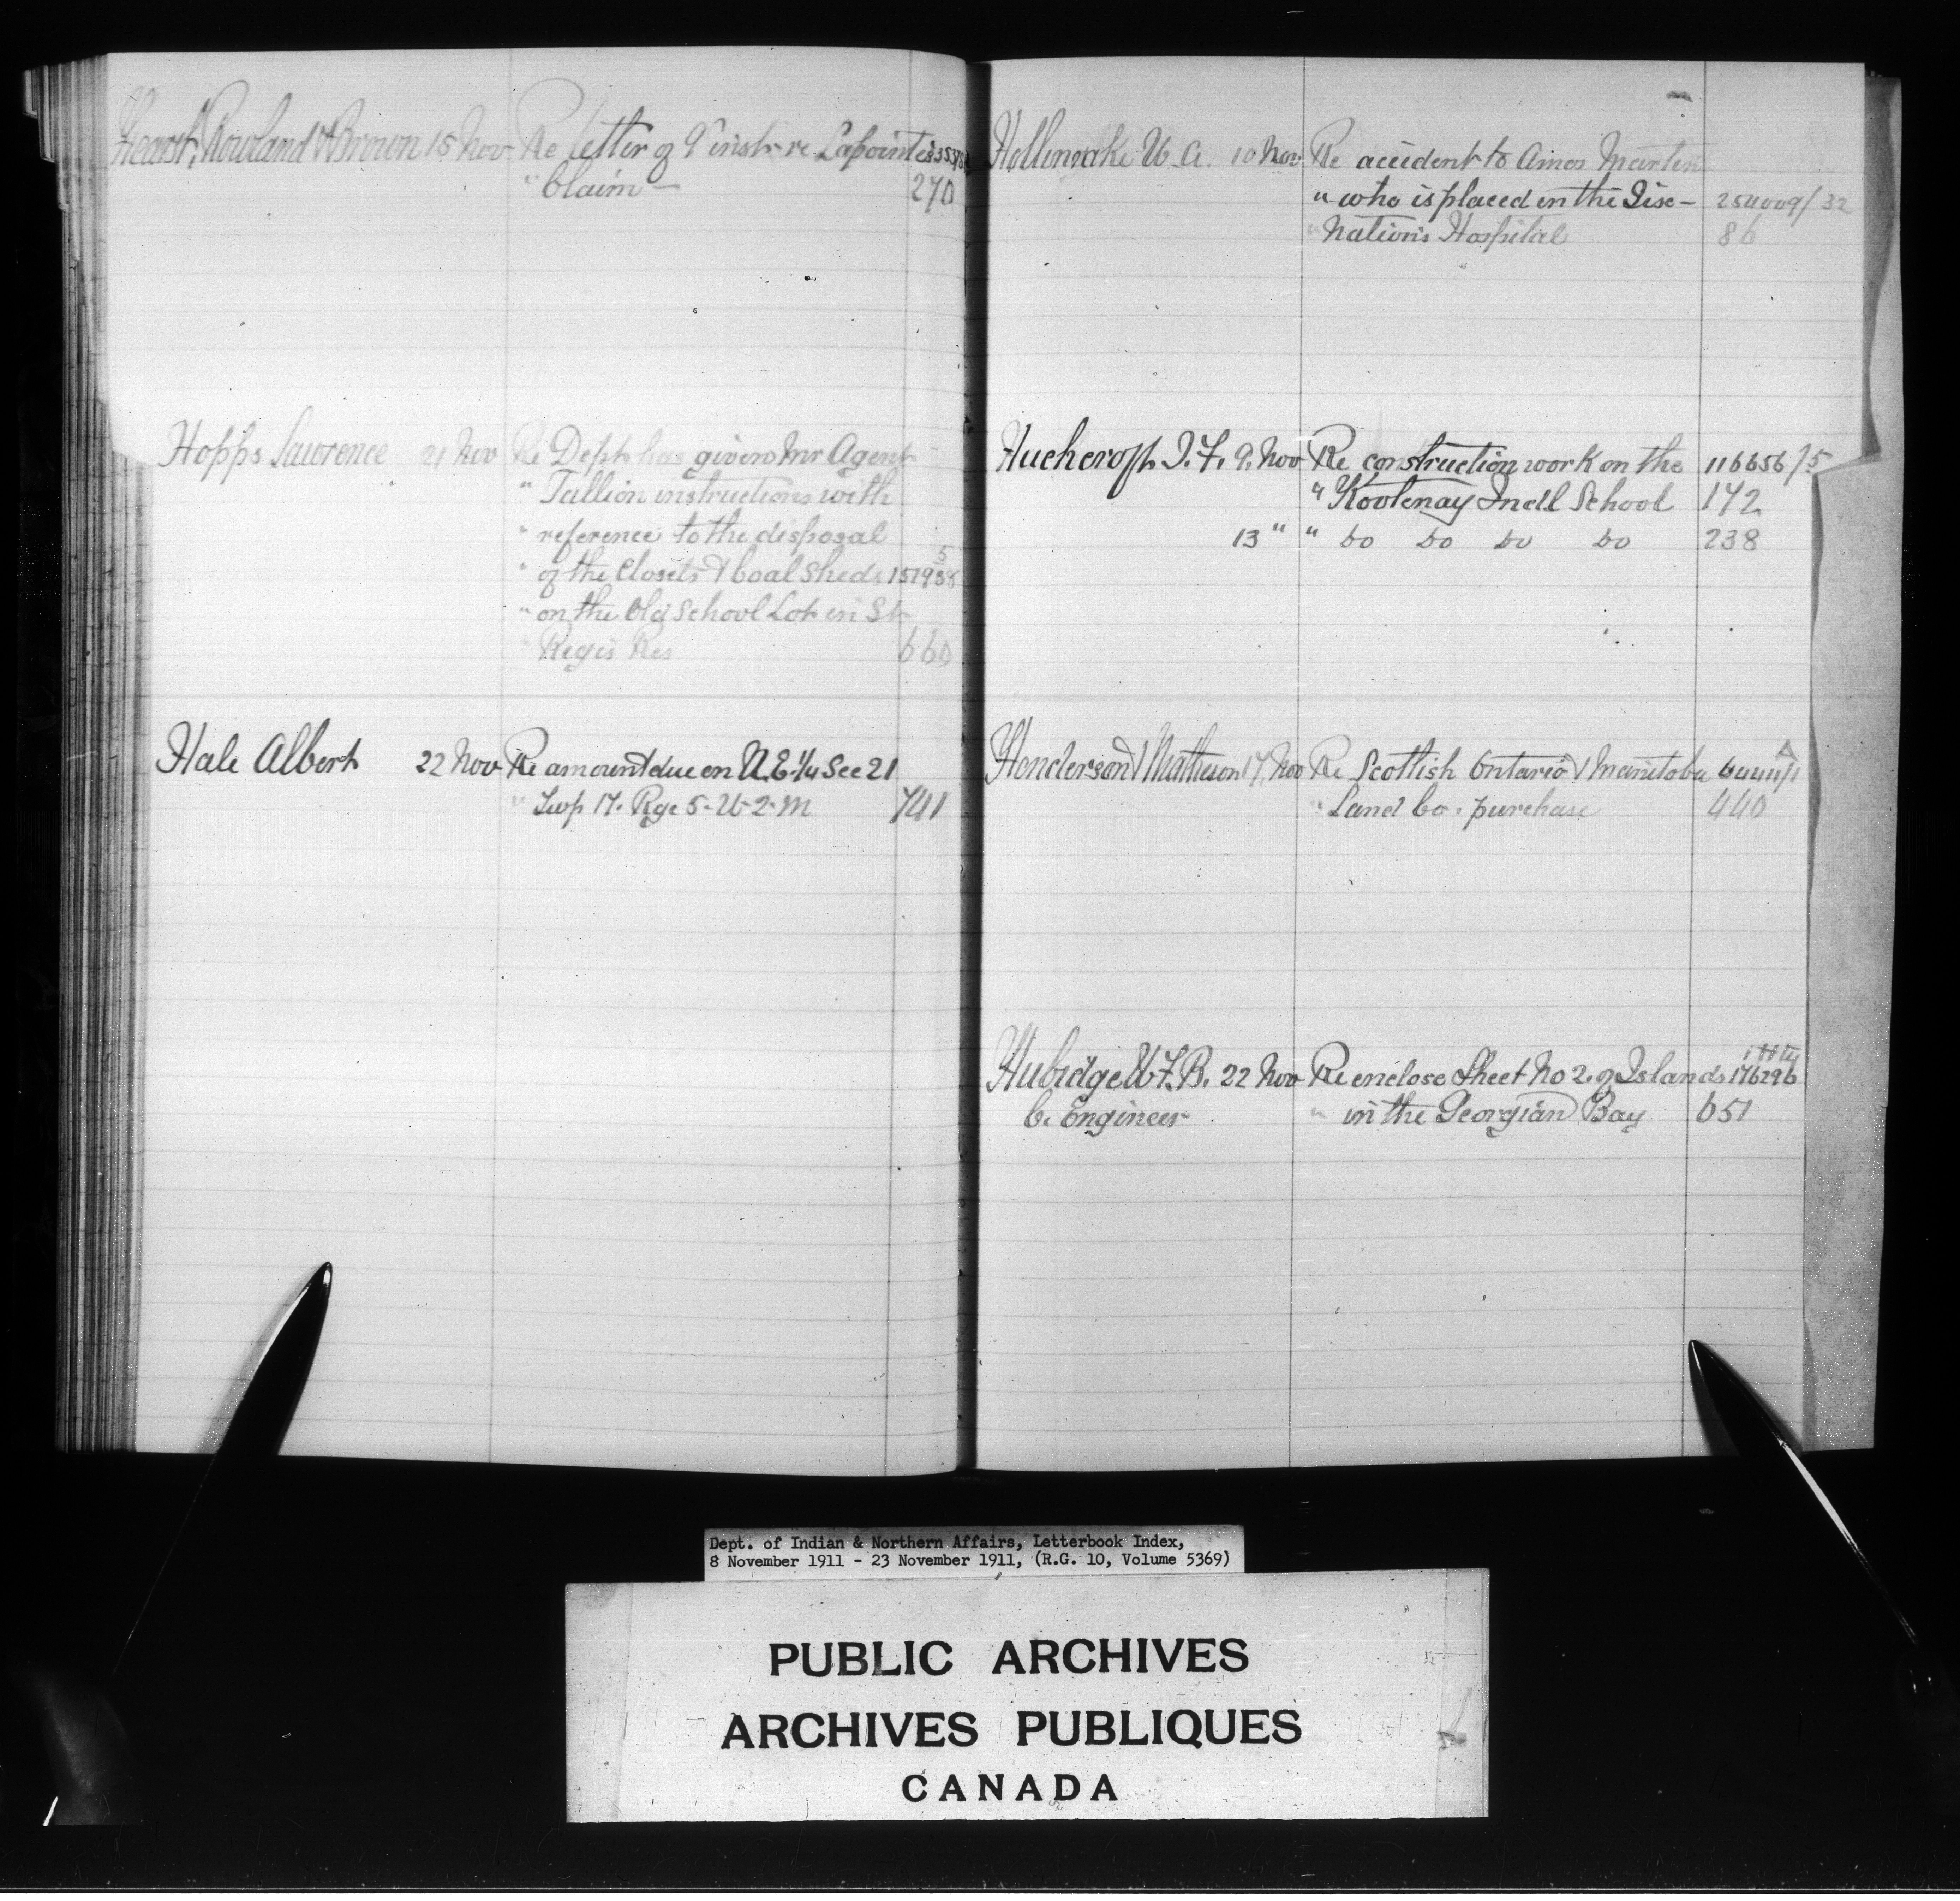 Hearst, Rowland & Brown 15 Nov Re letter of 9 inst re Lapointe's
" Claim — 270
Hopps Lawrence 21 Nov Re Dept has given Mr Agent
" Taillon instructions with
" reference to the disposal
" of the Closets & Coal Sheds 151938
" on the Old School Lot in St
" Regis Res 660
Hale Albert 22 Nov Re amount due on N.E. 1/4 Sec 21
" Twp 17. Rge 5-W-2-M 741
W. A. 10 Nov Re accident to Amos Marten
" who is placed in the Six-
254009/32
" Nations Hospital 86
Hucheroft 9. Nov Re construction work on the 116656/5
" Kootenay Indl School 172
13 " " Do Do Do Do 238
Henderson & Matheson 17. Nov Re Scottish Ontario & Manitoba
" Land Co. purchase 440
22 Nov Re enclose Sheet No 2. of Islands 176296
C. Engineer " in the Georgian Bay 651
Dept. of Indian & Northern Affairs, Letterbook Index,
8 November 1911 - 23 November 1911, (R.G. 10, Volume 5369)
PUBLIC ARCHIVES
ARCHIVES PUBLIQUES
CANADA